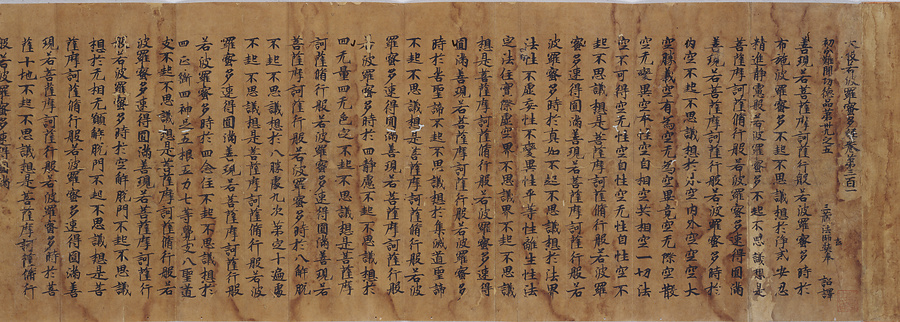 大般若波羅蜜多經卷第三百一
初分難聞功德品第卅九之五 三藏法師玄奘奉 詔譯
善現若菩薩摩訶薩脩行般若波羅蜜多時於
布施波羅蜜多不起不思議想於淨戒安忍
精進靜慮般若波羅蜜多不起不思議想是
菩薩摩訶薩脩行般若波羅蜜多速得圓滿
善現若菩薩摩訶薩脩行般若波羅蜜多時於
內空不起不思議想於外空內外空空空大
空勝義空有為空无為空畢竟空无際空散
空无變異空本性空自相空共相空一切法
空不可得空无性空自性空无性自性空不
起不思議想是菩薩摩訶薩脩行般若波羅
蜜多速得圓滿善現若菩薩摩訶薩脩行般若波
羅蜜多時於真如不起不思議想於法界
法性不虛妄性不變異性平等性離生性法
定法住實際虛空界不思議界不起不思議
想是菩薩摩訶薩脩行般若波羅蜜多速得
圓滿善現若菩薩摩訶薩脩行般若波羅蜜多
時於苦聖諦不起不思議想於集滅道聖諦
不起不思議想是菩薩摩訶薩脩行般若波
羅蜜多速得圓滿善現若菩薩摩訶薩脩行般
若波羅蜜多時於四靜慮不起不思議想於
四无量四无色定不起不思議想是菩薩摩
訶薩脩行般若波羅蜜多速得圓滿善現若
菩薩摩訶薩脩行般若波羅蜜多時於八解脫
不起不思議想於八勝處九次第定十遍處
不起不思議想是菩薩摩訶薩脩行般若波
羅蜜多速得圓滿善現若菩薩摩訶薩脩行般
若波羅蜜多時於四念住不起不思議想於
四正斷四神足五根五力七等覺支八聖道
支不起不思議想是菩薩摩訶薩脩行般若
波羅蜜多速得圓滿善現若菩薩摩訶薩脩行
般若波羅蜜多時於空解脫門不起不思議
想於无相无願解脫門不起不思議想是菩
薩摩訶薩脩行般若波羅蜜多速得圓滿善
現若菩薩摩訶薩脩行般若波羅蜜多時於菩
薩十地不起不思議想是菩薩摩訶薩脩行
般若波羅蜜多速得圓滿